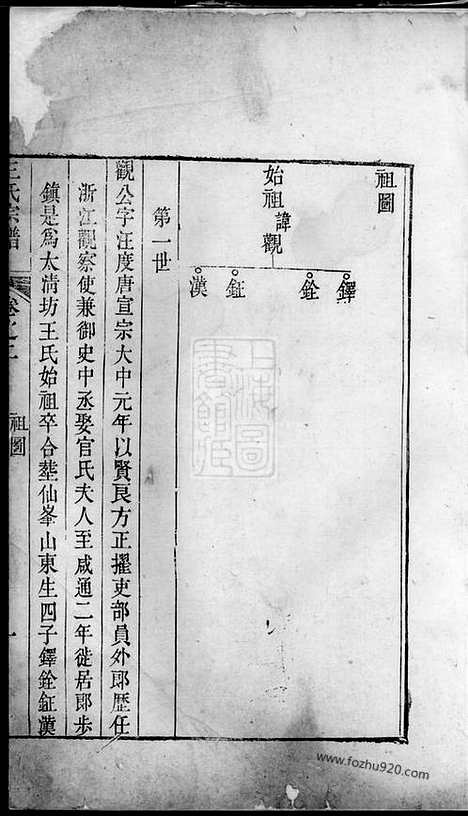 祖圖
始祖諱觀
鐸
銓
鉦
漢
第一世
觀公字汪度唐宣宗大中元年以賢良方正擢吏部員外郎歷任
浙江觀察使兼御史中丞娶官氏夫人至咸通二年徙居郎步
鎮是為太清坊王氏始祖卒合塟仙峯山東生四子鐸銓鉦漢
王氏宗譜
卷之二
祖圖
一
上海圖書館藏
www.fozhu920.com